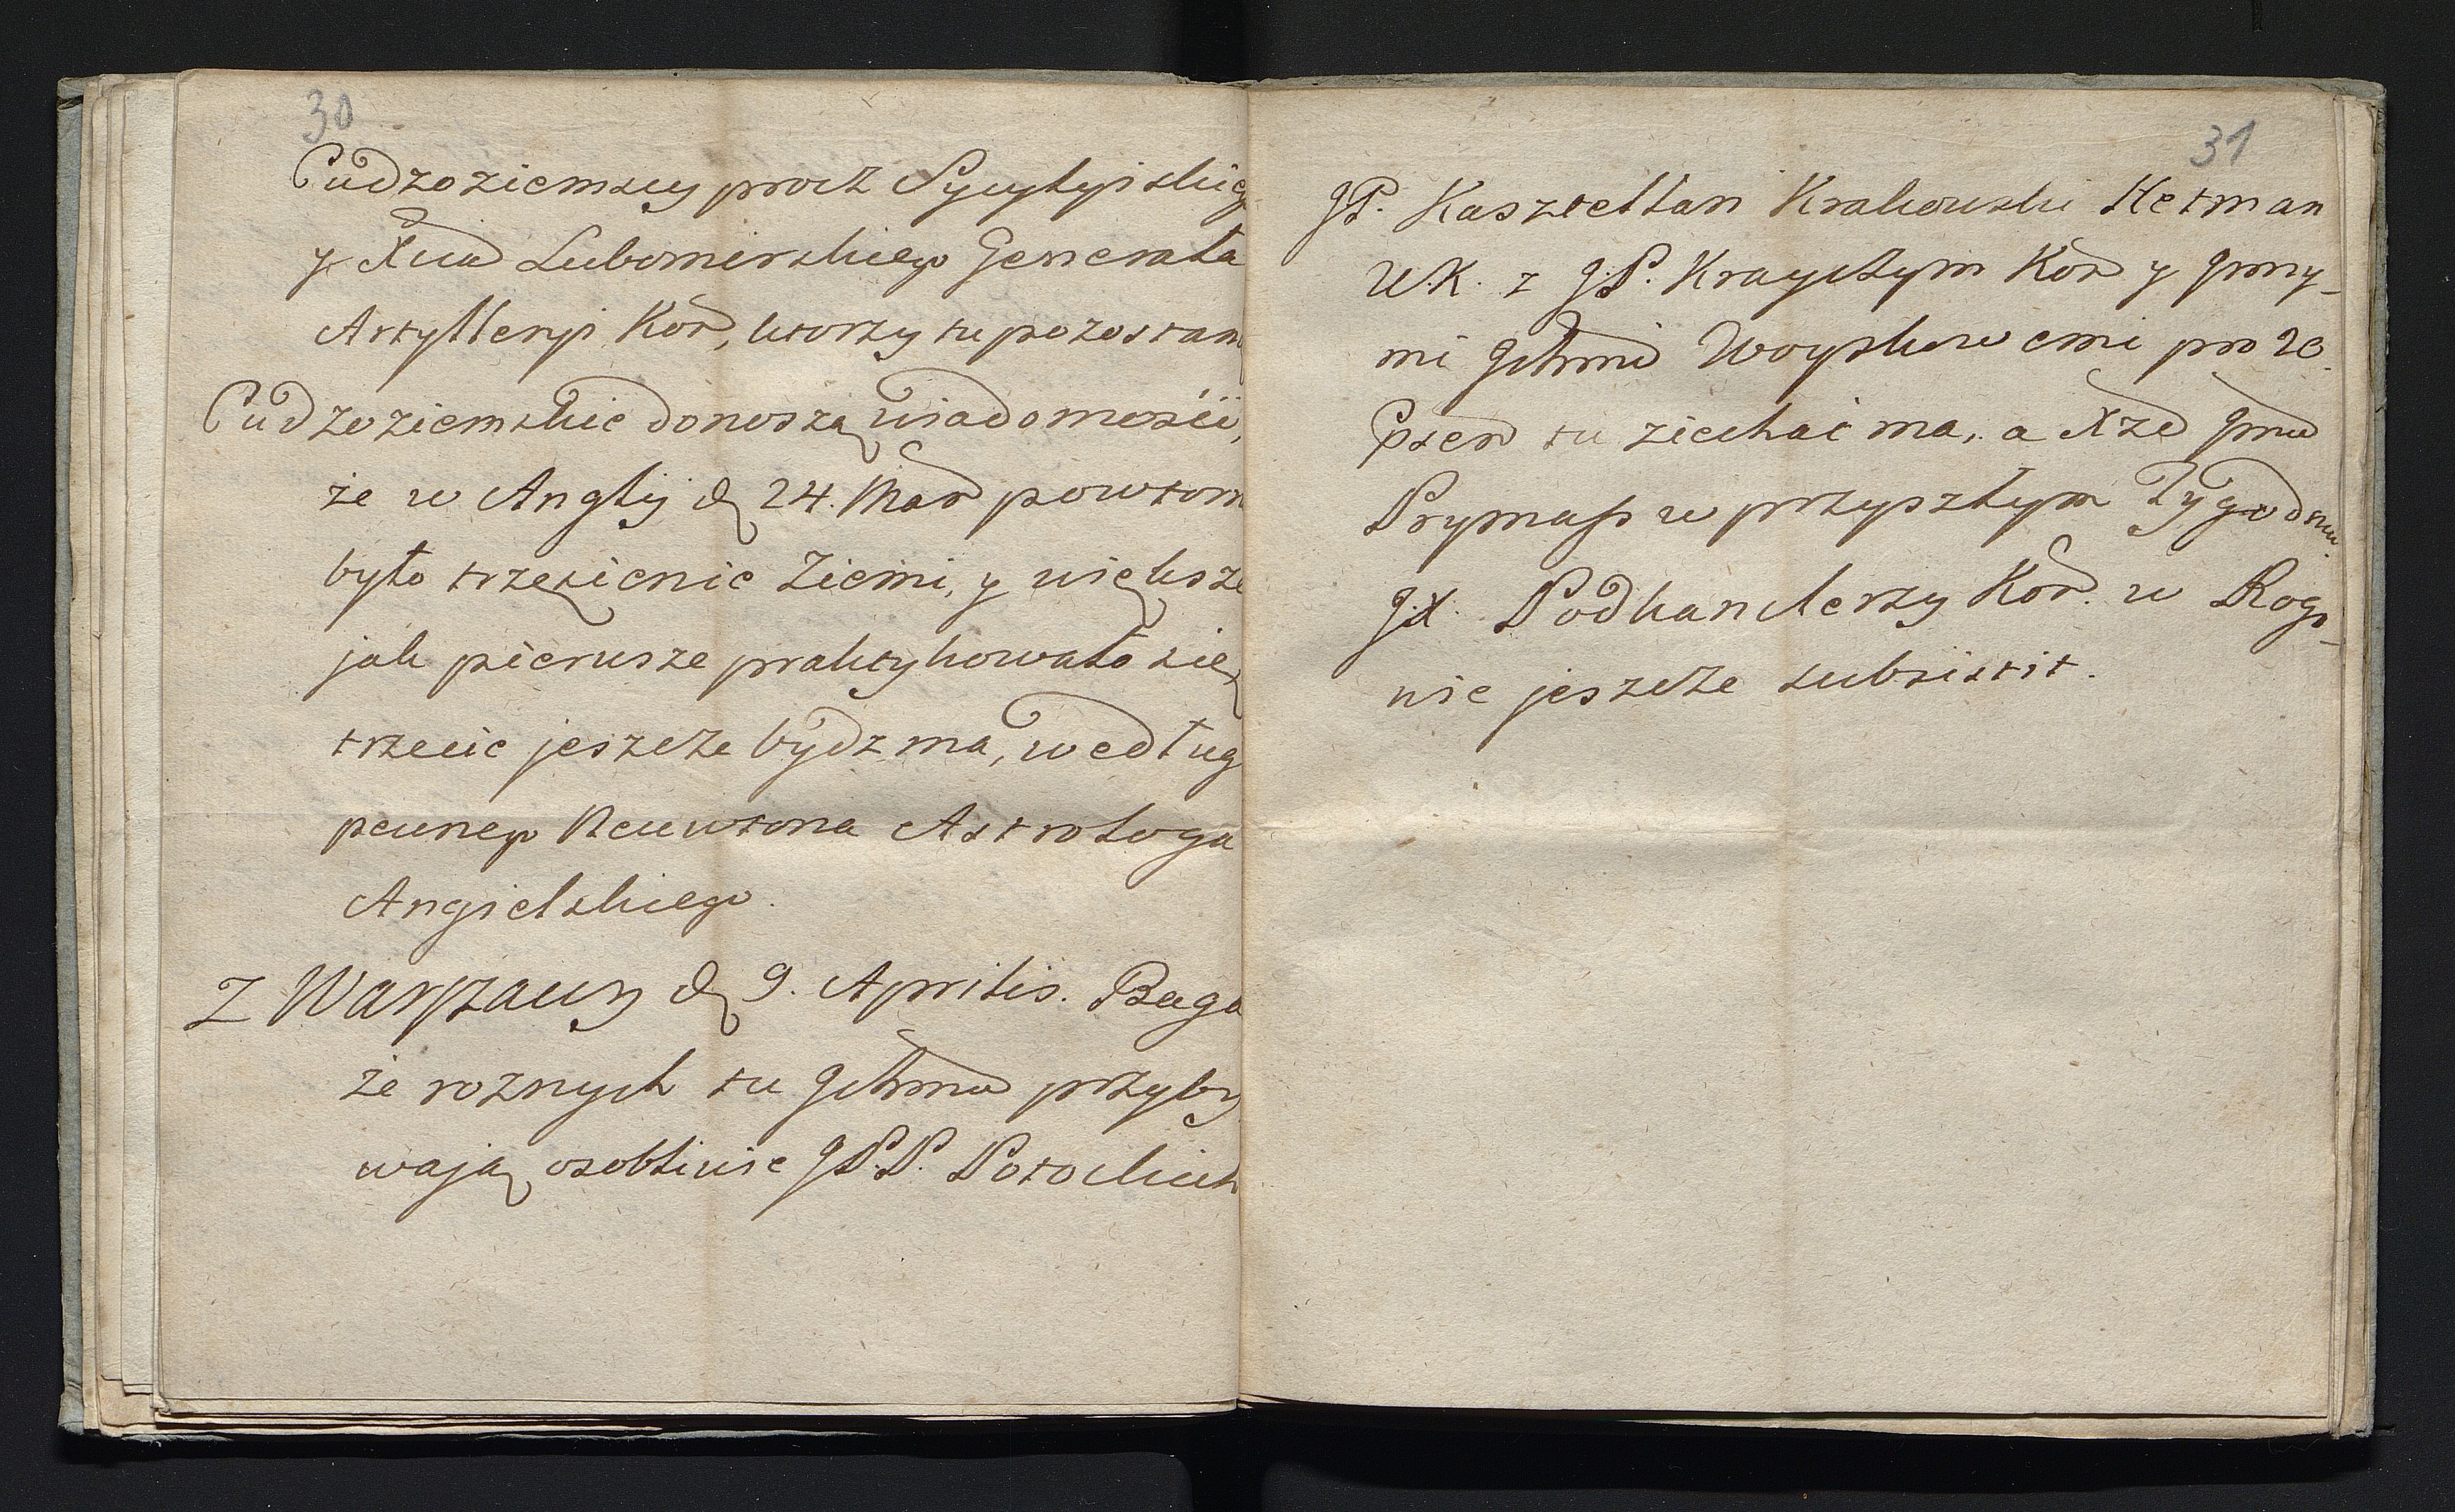 30
Cudzoziemscy procz Sycylyiskieg
y Xcia Lubomirskiego Generała
Artylleryi Kor, ktorzy tu pozostan
Cudzoziemskie donoszą wiadomości,
że w Anglij d 24. Mar powtorn
było trzęsienie Ziemi, y większe
jak pierwsze praktykowało się,
trzecie jeszcze bydz ma, według
pewnego Neuwtona Astrologa
Angielskiego.
Z Warszawy d 9. Aprilis. Baga
że roznych tu Ichmw przyby
wają osobliwie JPP. Potockich
31
JP. Kasztellan Krakowski Hetman
W.K. z J.P. Krayczym Kor y innym_
mi Ichmć Woyskowemi pro 20.
Psen tu ziechać ma, a Xże Jmć
Prymass w przyszłym Tygodniu.
J.X. Podkanclerzy Kor. w Rogo_
wie jeszcze subsistit.